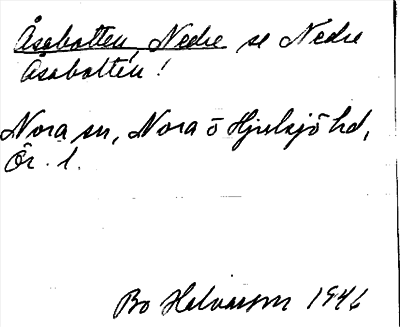 Åsabotten, Nedre se Nedre
Åsabotten!
Nora sn, Nora o Hjulsjö hd,
Ör. l.
Bo Halvarson 1946